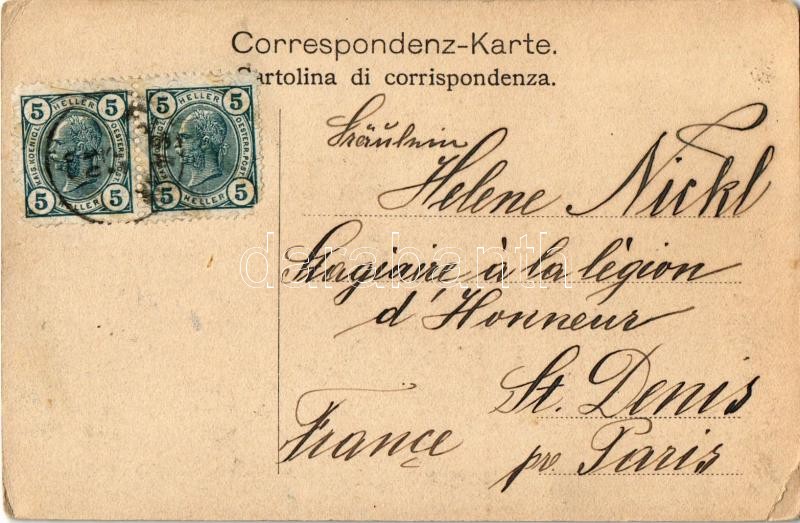 Correspondenz-Karte.
Cartolina di corrispondenza.
5 HELLER 5
KAIS. KOENIGL. OESTERR. POST.
5 HELLER 5
5 HELLER 5
OESTERR. POST.
5 HELLER 5
Fräulein
Helene Nickl
Stagiaire à la légion
d'Honneur
St. Denis
France
pr. Paris
darabanth